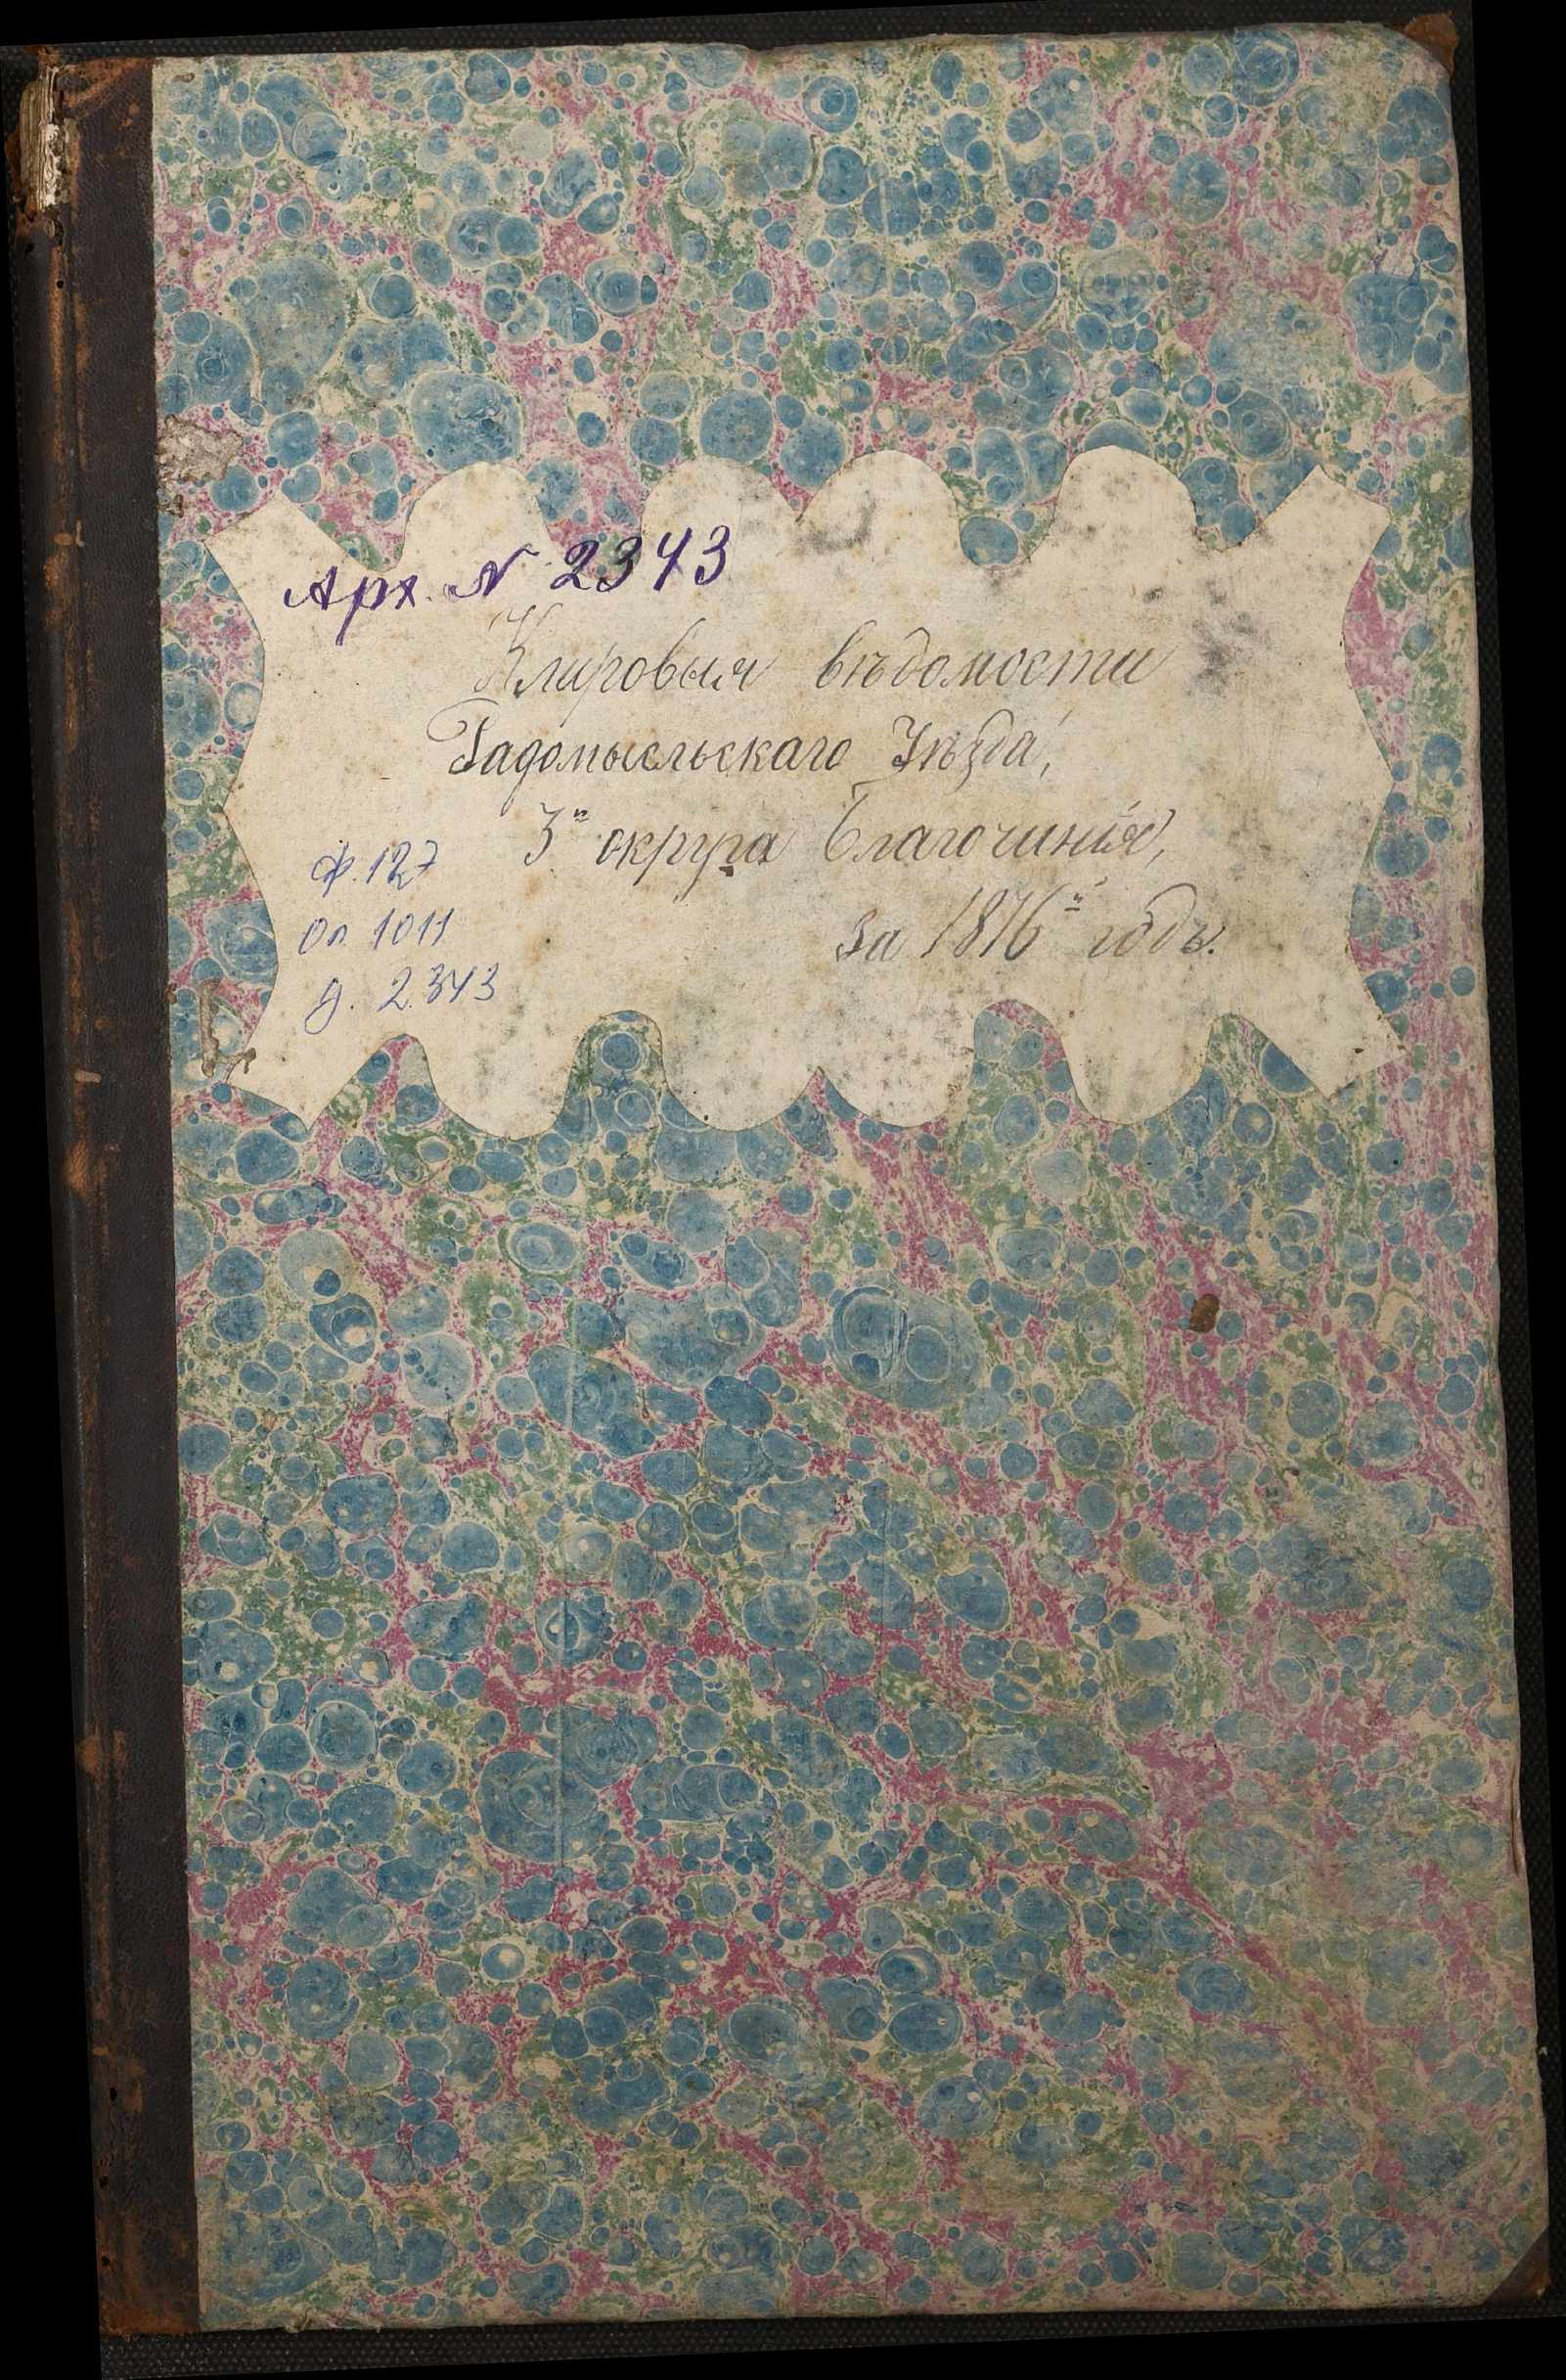 Арх. N 2343
Клировыя вѣдомости
Радомысльскаго Уѣзда,
3го округа Благочинія,
за 1876й годъ.
Ф. 127
Оп. 1011
Д. 2343